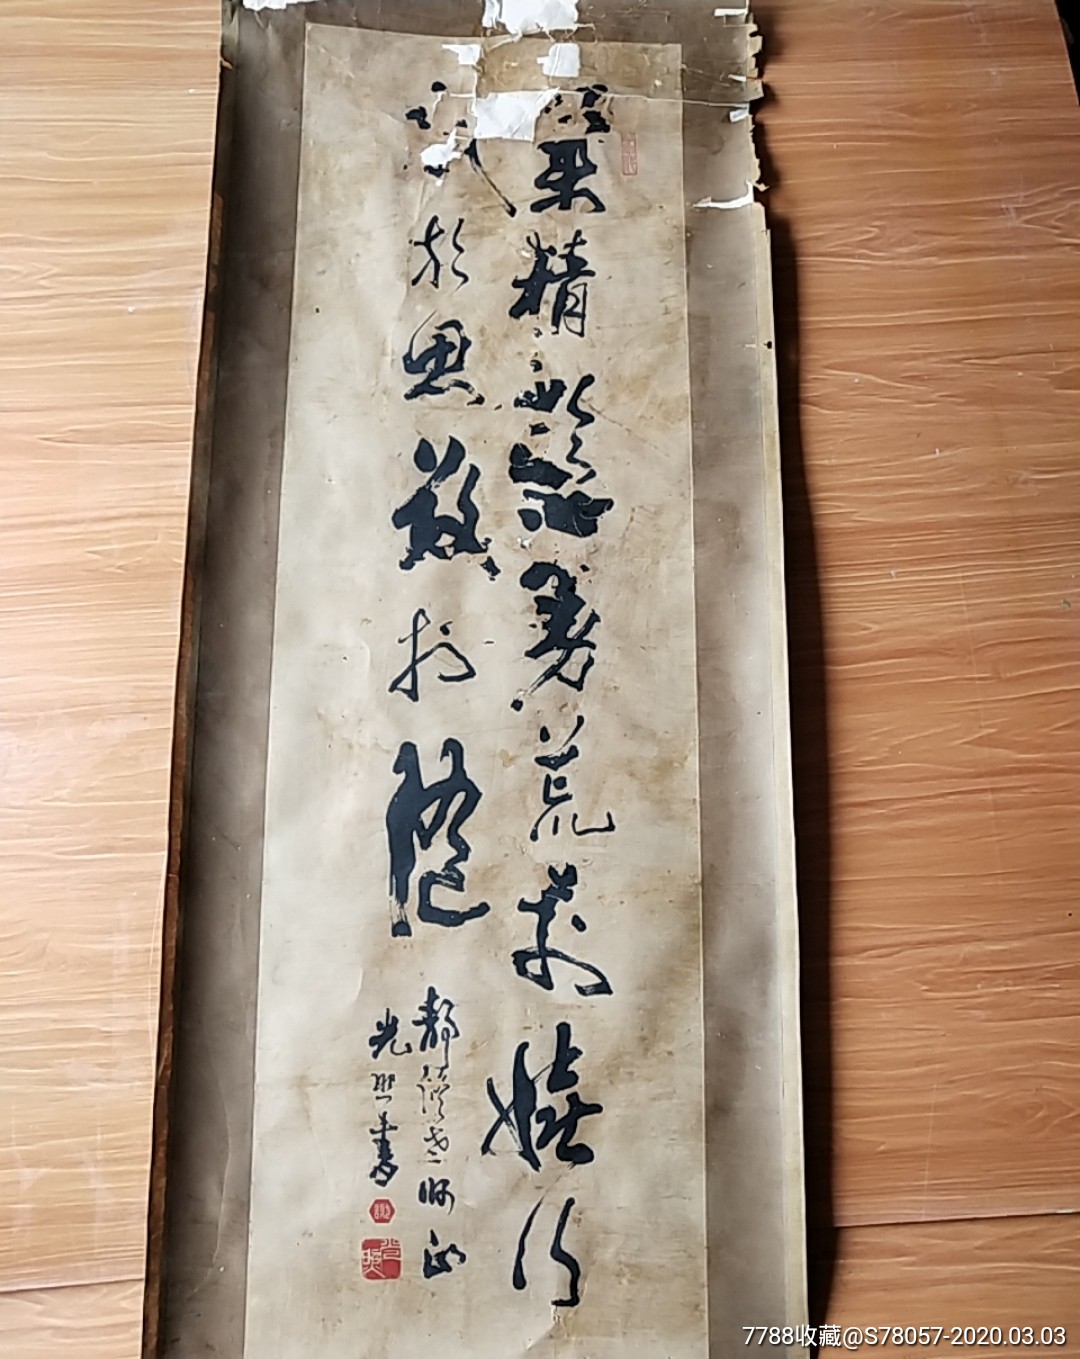 業精於勤荒於嬉行
成於思毀於隨
靜漢老師正
光照書
7788收藏@S78057-2020.03.03